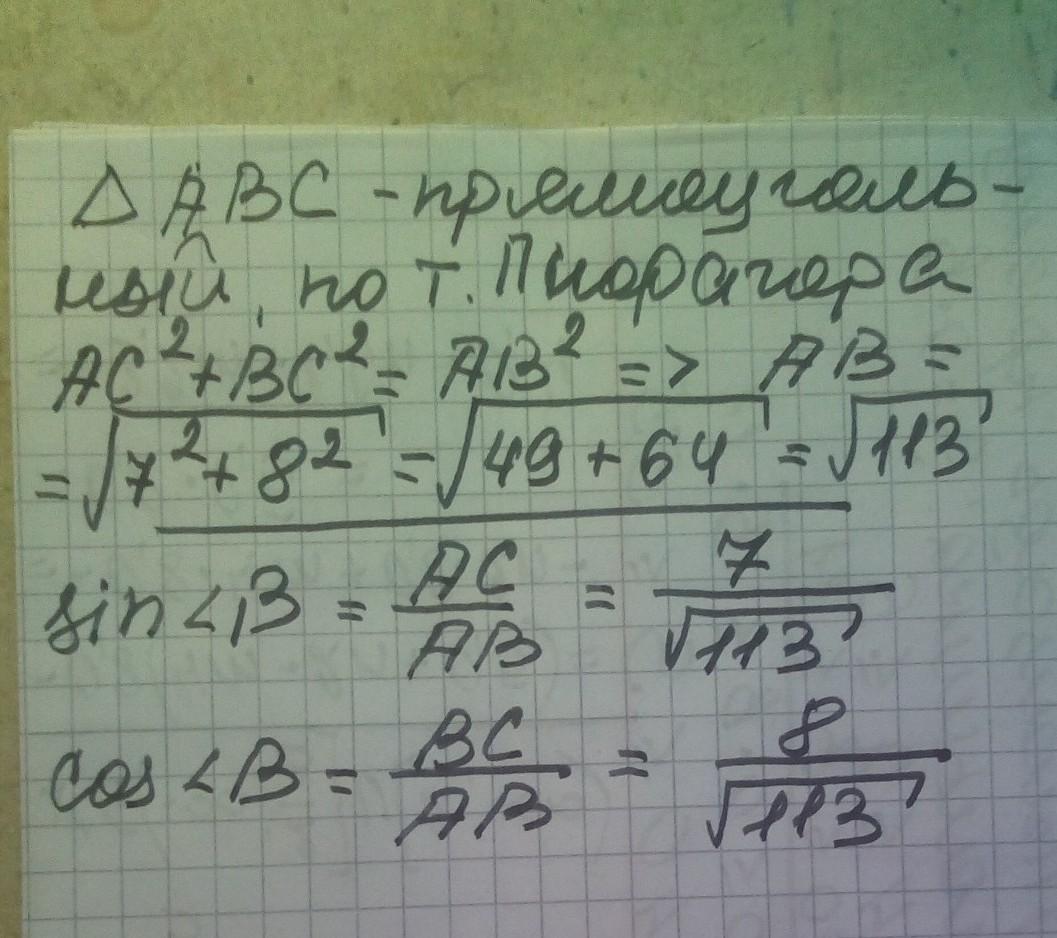 △ ABC - прямоуголь-
ный, по т. Пифагора
AC² + BC² = AB² => AB =
= √7² + 8² = √49 + 64 = √113
sin ∠B = AC/AB = 7/√113
cos ∠B = BC/AB = 8/√113